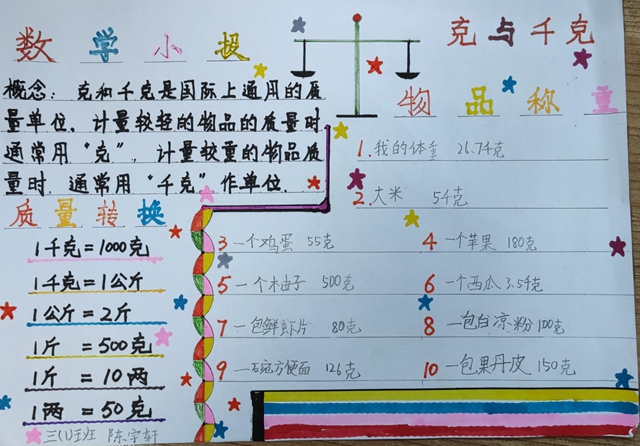 数学小报
克与千克
概念：克和千克是国际上通用的质
量单位。计量较轻的物品的质量时
通常用“克”，计量较重的物品质
量时，通常用“千克”作单位．
质量转换
1千克=1000克
1千克=1公斤
1公斤=2斤
1斤=500克
1斤=10两
1两=50克
三(1)班 陈宇轩
物品称重
1.我的体重 26.7千克
2.大米 5千克
3 一个鸡蛋 55克
4 一个苹果 180克
5 一个柚子 500克
6 一个西瓜 3.5千克
7 一包鲜虾片 80克
8 一包白凉粉 100克
9 一碗方便面 126克
10 一包果丹皮 150克